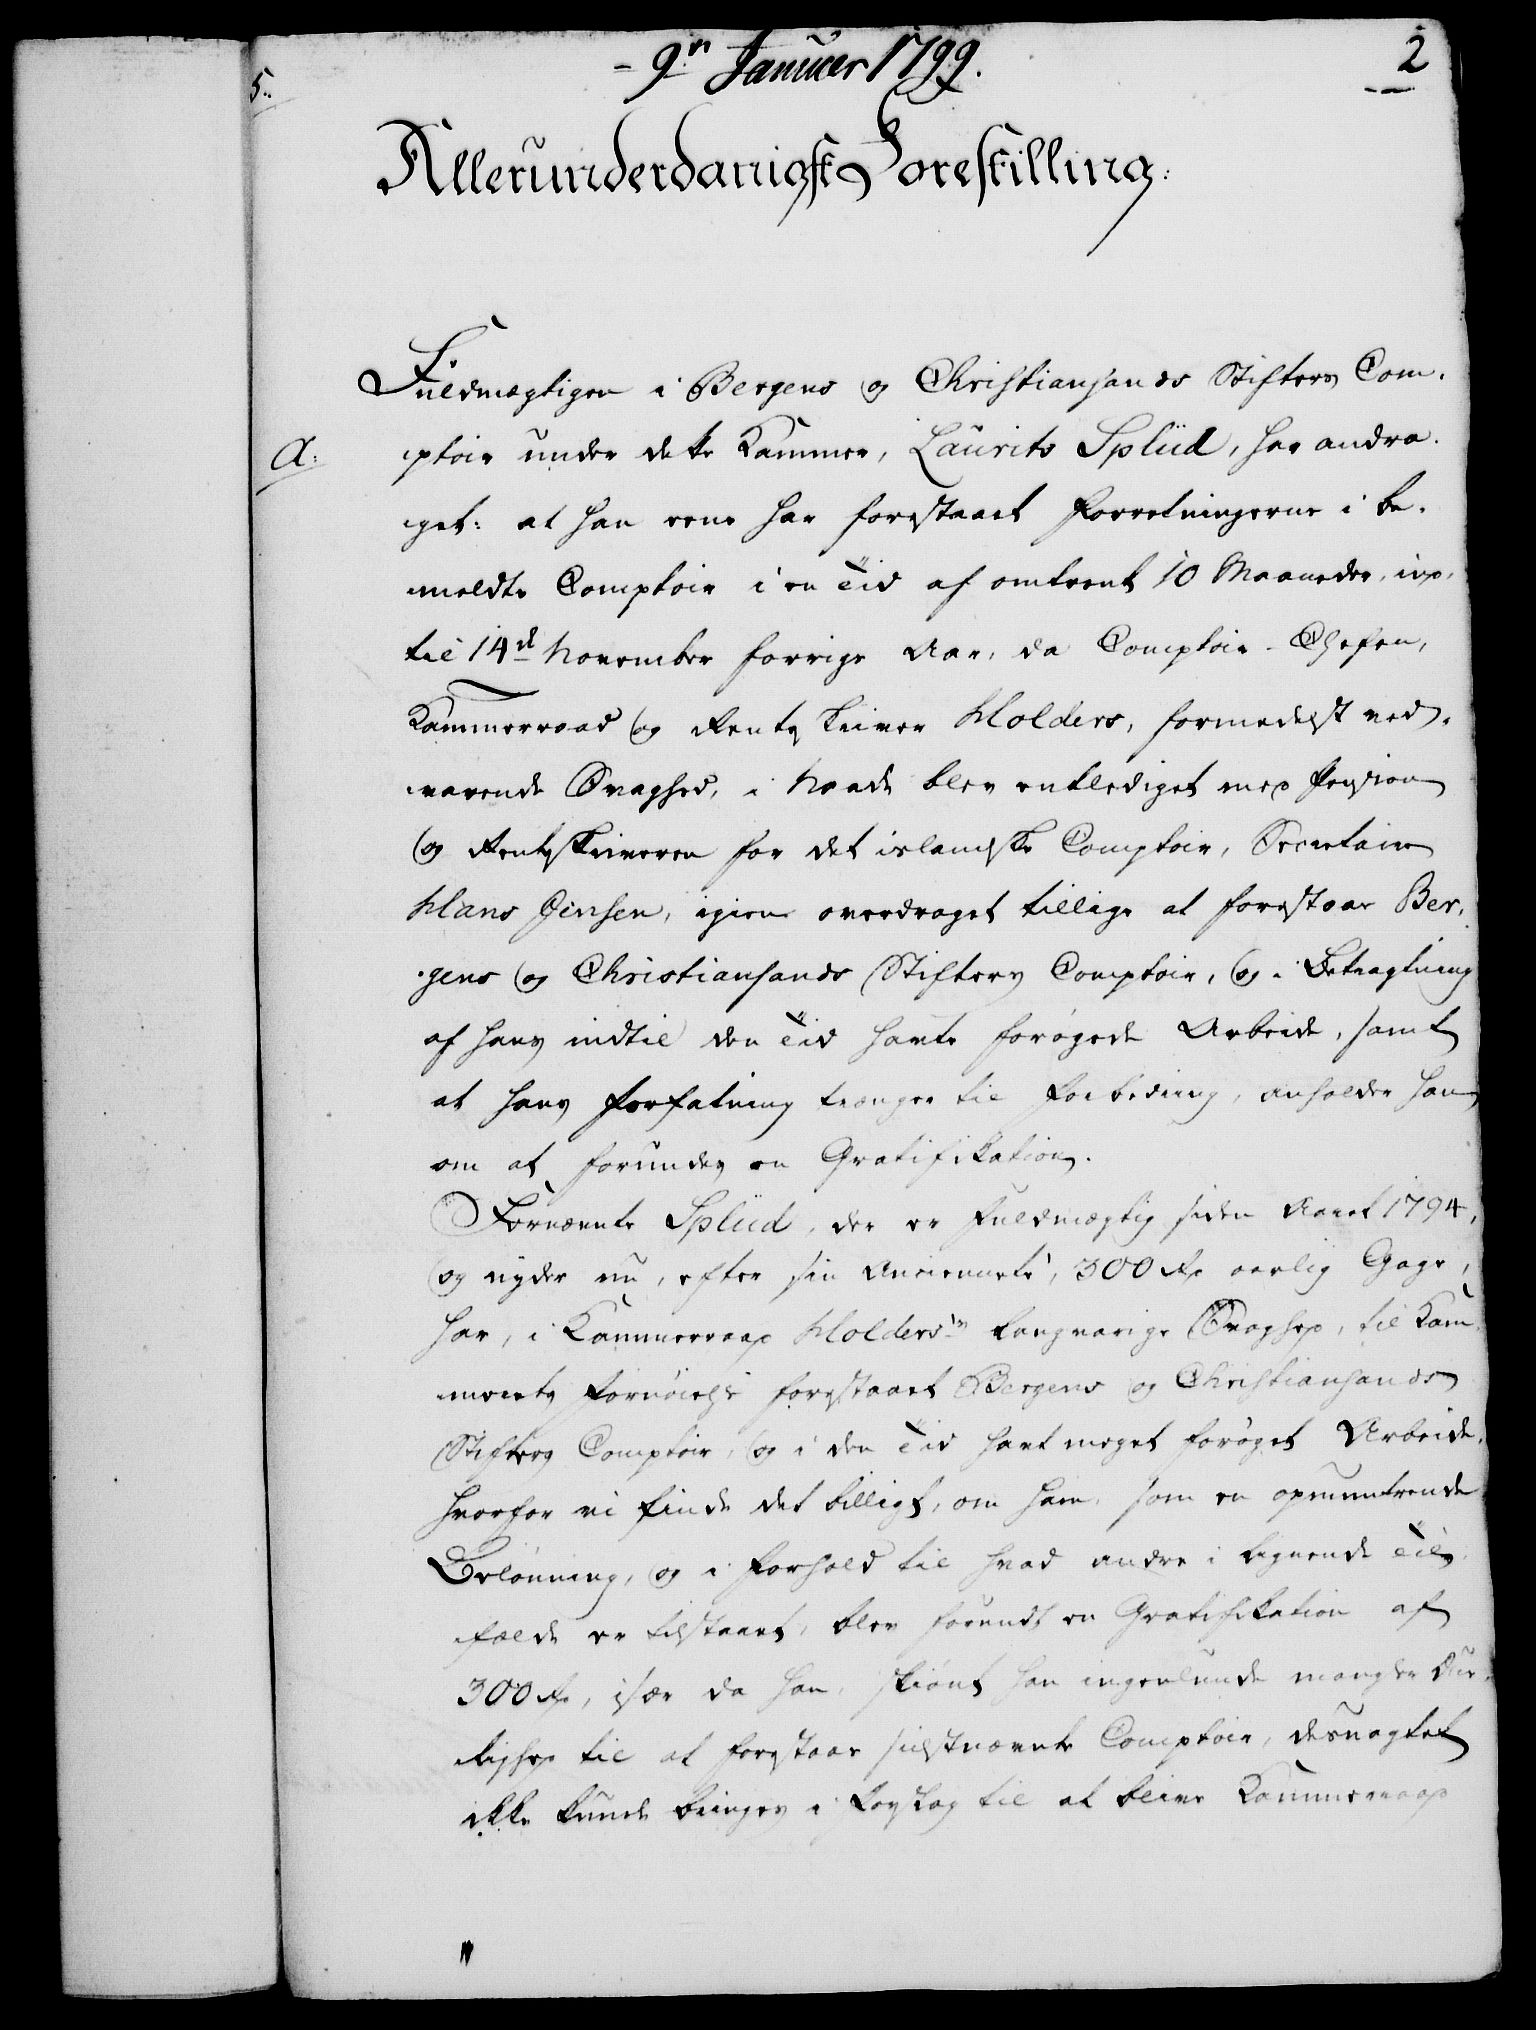 - 9de Januar 1799.
2
5.
Allerunderdanigst Forestilling:
Fuldmægtigen i Bergens og Christiansands Stifters Com-
A:
ptoir under dette Kammer, Laurits Splüd, har andra-
get: at han eene har forestaaet Forretningerne i be-
meldte Comptoir i en Tid af omtrent 10 Maaneder, ind-
til 14de November forrige Aar, da Comptoir-Chefen,
Kammerraad og Renteskriver Holders, formedelst ved-
varende Svaghed, i Naade blev entlediget med Pension
og Renteskriveren for det islandske Comptoir, Secretair
Hans Jensen, igien overdraget tillige at forestaae Ber-
gens og Christiansands Stifters Comptoir, og i Betragtning
af hans indtil den Tid havte forøgede Arbeide, samt
at hans Forfatning trænger til Forbedring, anholder han
om at forundes en Gratifikation.
Fornævnte Splüd, der er Fuldmægtig siden Aaret 1794,
og nyder nu, efter sin Ancienneté, 300 Rd aarlig Gage,
har, i Kammerraad Holders's langvarige Svaghed, til Kam-
merets Fornøielse forestaaet Bergens og Christiansands
Stifters Comptoir, og i den Tid havt meget forøget Arbeide,
hvorfor vi finde det billigt, om ham, som en opmuntrende
Belønning, og i Forhold til hvad andre i lignende Til-
fælde er tilstaaet, blev forundt en Gratifikation af
300 Rd, især da han, skiønt han ingenlunde mangler Due-
lighed til at forestaae sidstnævnte Comptoir, desuagtet
ikke kunde bringes i Forslag til at blive Kammerraad